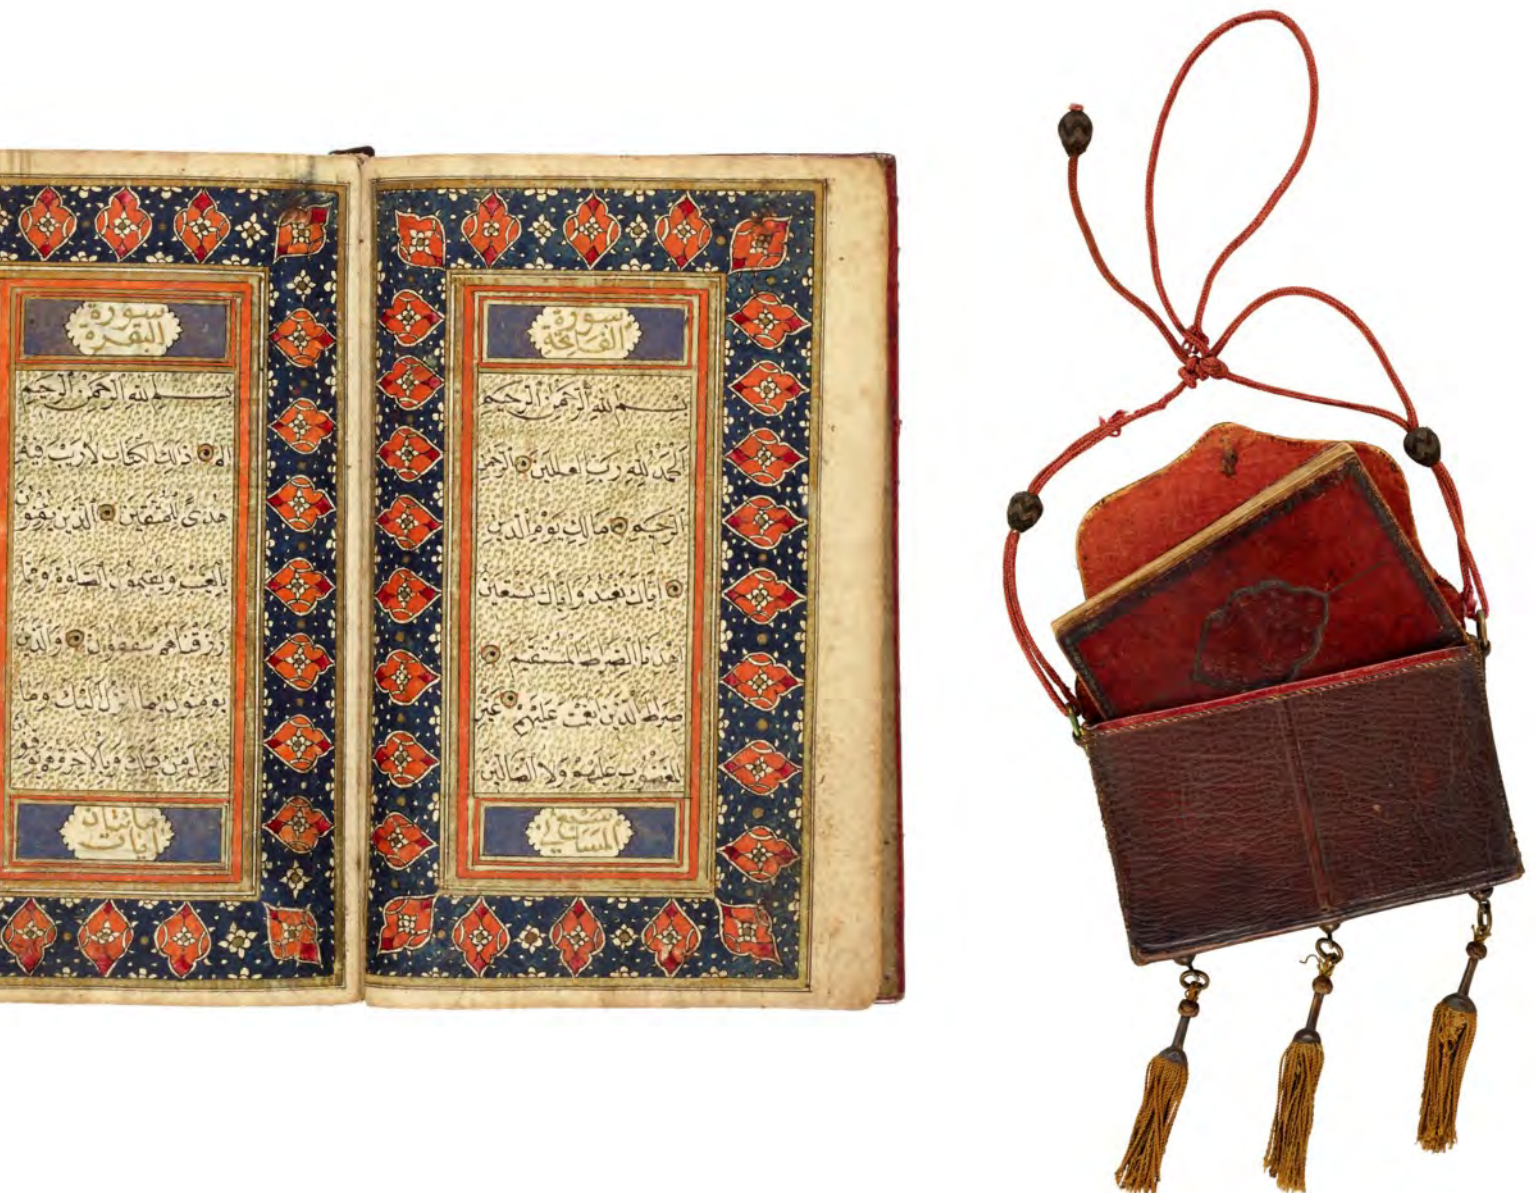 سورة
الفاتحة
بسم الله الرحمن الرحيم
الحمد لله رب العلمين الرحمن
الرحيم مالك يوم الدين
اياك نعبد و اياك نستعين
اهدنا الصراط المستقيم
صراط الذين انعمت عليهم غير
المغضوب عليهم ولا الضالين
سورة
البقرة
بسم الله الرحمن الرحيم
الم ذلك الكتاب لا ريب فيه
هدى للمتقين الذين
بالغيب ويقيمون الصلوة ومما
رزقناهم ينفقون والذين
يومنون بما انزل اليك وما
انزل من قبلك وبالاخرة
ايات